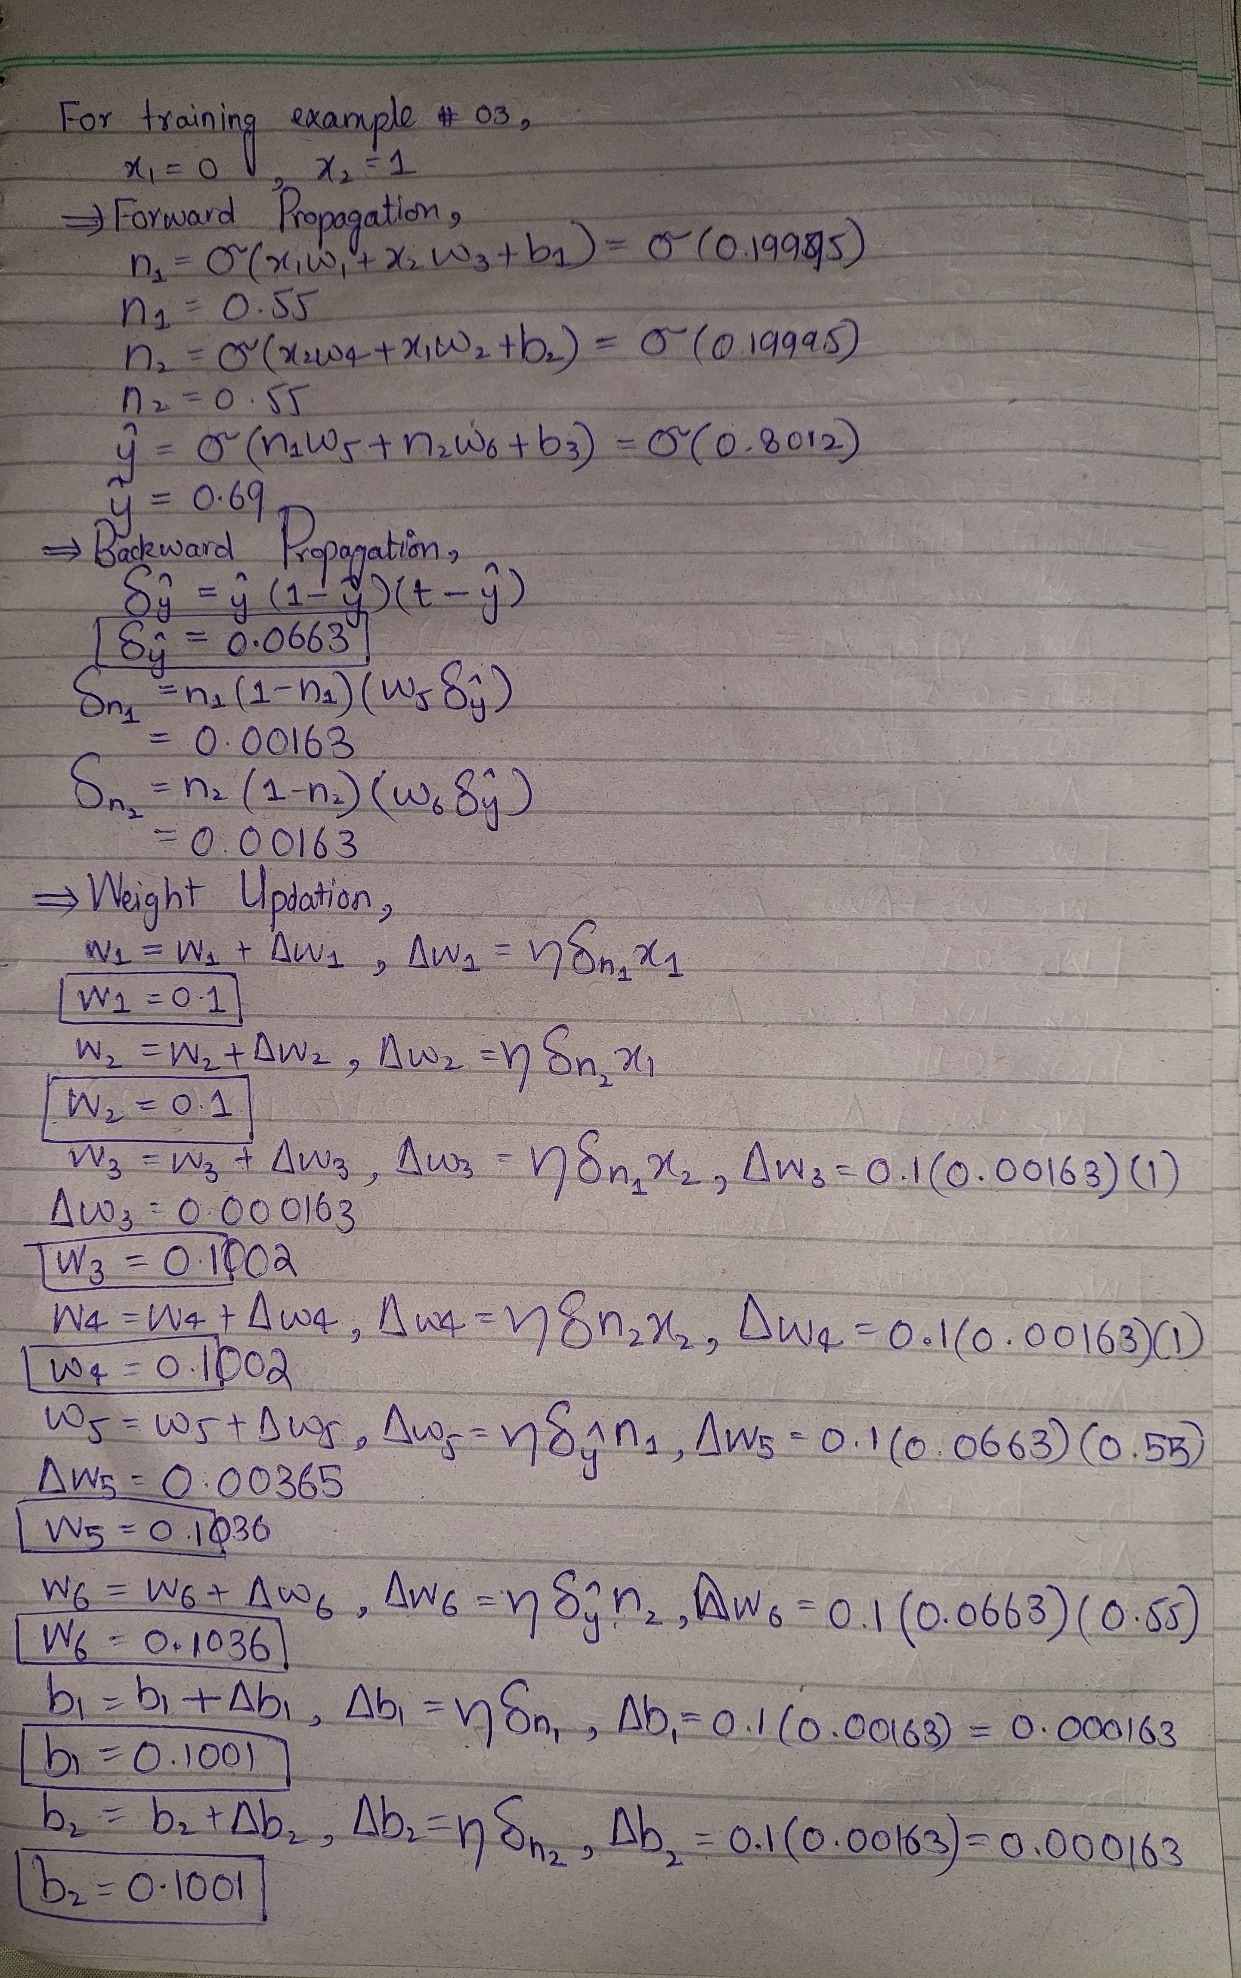 For training example # 03,
x₁ = 0 , x₂ = 1
⇒ Forward Propagation,
n₁ = σ(x₁w₁ + x₂w₃ + b₁) = σ(0.19995)
n₁ = 0.55
n₂ = σ(x₂w₄ + x₁w₂ + b₂) = σ(0.19995)
n₂ = 0.55
ŷ = σ(n₁w₅ + n₂w₆ + b₃) = σ(0.8012)
ŷ = 0.69
⇒ Backward Propagation,
δŷ = ŷ(1-ŷ)(t-ŷ)
δŷ = 0.0663
δn₁ = n₁(1-n₁)(w₅δŷ)
= 0.00163
δn₂ = n₂(1-n₂)(w₆δŷ)
= 0.00163
⇒ Weight Updation,
w₁ = w₁ + Δw₁ , Δw₁ = ηδn₁x₁
w₁ = 0.1
w₂ = w₂ + Δw₂ , Δw₂ = ηδn₂x₁
w₂ = 0.1
w₃ = w₃ + Δw₃ , Δw₃ = ηδn₁x₂ , Δw₃ = 0.1(0.00163)(1)
Δw₃ = 0.000163
w₃ = 0.1002
w₄ = w₄ + Δw₄ , Δw₄ = ηδn₂x₂ , Δw₄ = 0.1(0.00163)(1)
w₄ = 0.1002
w₅ = w₅ + Δw₅ , Δw₅ = ηδŷn₁ , Δw₅ = 0.1(0.0663)(0.55)
Δw₅ = 0.00365
w₅ = 0.1036
w₆ = w₆ + Δw₆ , Δw₆ = ηδŷn₂ , Δw₆ = 0.1(0.0663)(0.55)
w₆ = 0.1036
b₁ = b₁ + Δb₁ , Δb₁ = ηδn₁ , Δb₁ = 0.1(0.00163) = 0.000163
b₁ = 0.1001
b₂ = b₂ + Δb₂ , Δb₂ = ηδn₂ , Δb₂ = 0.1(0.00163) = 0.000163
b₂ = 0.1001